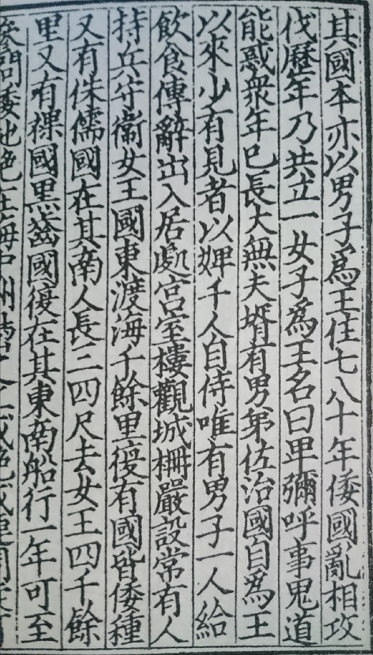 其國本亦以男子爲王住七八十年倭國亂相攻
伐歷年乃共立一女子爲王名曰卑彌呼事鬼道
能惑衆年已長大無夫壻有男弟佐治國自爲王
以來少有見者以婢千人自侍唯有男子一人給
飲食傳辭出入居處宮室樓觀城柵嚴設常有人
持兵守衛女王國東渡海千餘里復有國皆倭種
又有侏儒國在其南人長三四尺去女王四千餘
里又有裸國黑齒國復在其東南船行一年可至
問倭地絶